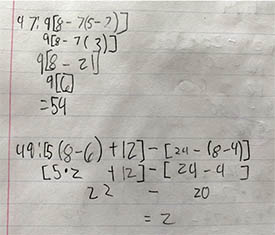 47: 9[8-7(5-2)]
9[8-7(3)]
9[8-21]
9[6]
=54
49:[5(8-6)+12]-[24-(8-4)]
[5·2 +12]-[24-4]
22 - 20
=2